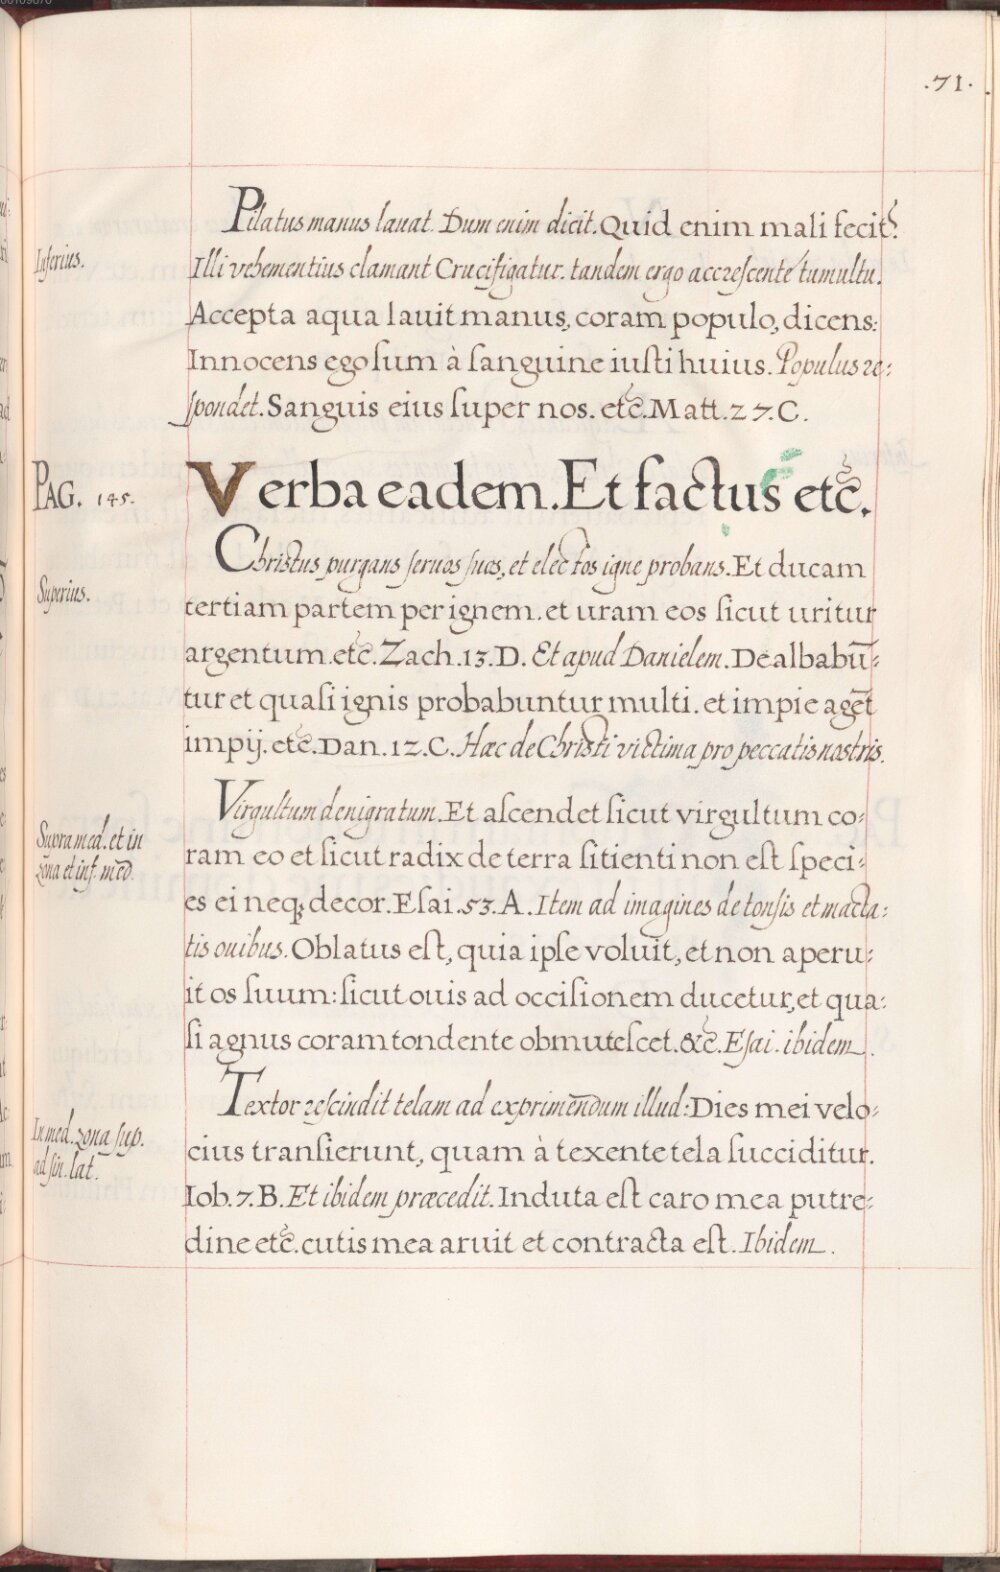 .71.
Inferius.
Pilatus manus lauat. Dum enim dicit. Quid enim mali fecit?
Illi vehementius clamant Crucifigatur. tandem ergo accrescente tumultu.
Accepta aqua lauit manus, coram populo, dicens:
Innocens ego ſum à ſanguine iuſti huius. Populus re-
ſpondet. Sanguis eius ſuper nos. etc̃. Matt. 27. C.
PAG. 145.
Verba eadem. Et factus etc̃.
Superius.
Christus purgans ſeruos ſuos, et electos igne probans. Et ducam
tertiam partem per ignem. et uram eos ſicut uritur
argentum. etc̃. Zach. 13. D. Et apud Danielem. Dealbabū-
tur et quaſi ignis probabuntur multi. et impie agēt
impij. etc̃. Dan. 12. C. Hæc de Christi victima pro peccatis nostris.
Supra med. et in
zona et inf. med.
Virgultum denigratum. Et aſcendet ſicut virgultum co-
ram eo et ſicut radix de terra ſitienti non eſt ſpeci-
es ei neq; decor. Eſai. 53. A. Item ad imagines de tonſis et macta-
tis ouibus. Oblatus eſt, quia ipſe voluit, et non aperu-
it os ſuum: ſicut ouis ad occiſionem ducetur, et qua-
ſi agnus coram tondente obmuteſcet. &c̃. Eſai. ibidem.
In med. zona ſup.
ad ſin. lat.
Textor reſcindit telam ad exprimēndum illud: Dies mei velo-
cius tranſierunt, quam à texente tela ſucciditur.
Iob. 7. B. Et ibidem præcedit. Induta eſt caro mea putre-
dine etc̃. cutis mea aruit et contracta eſt. Ibidem.